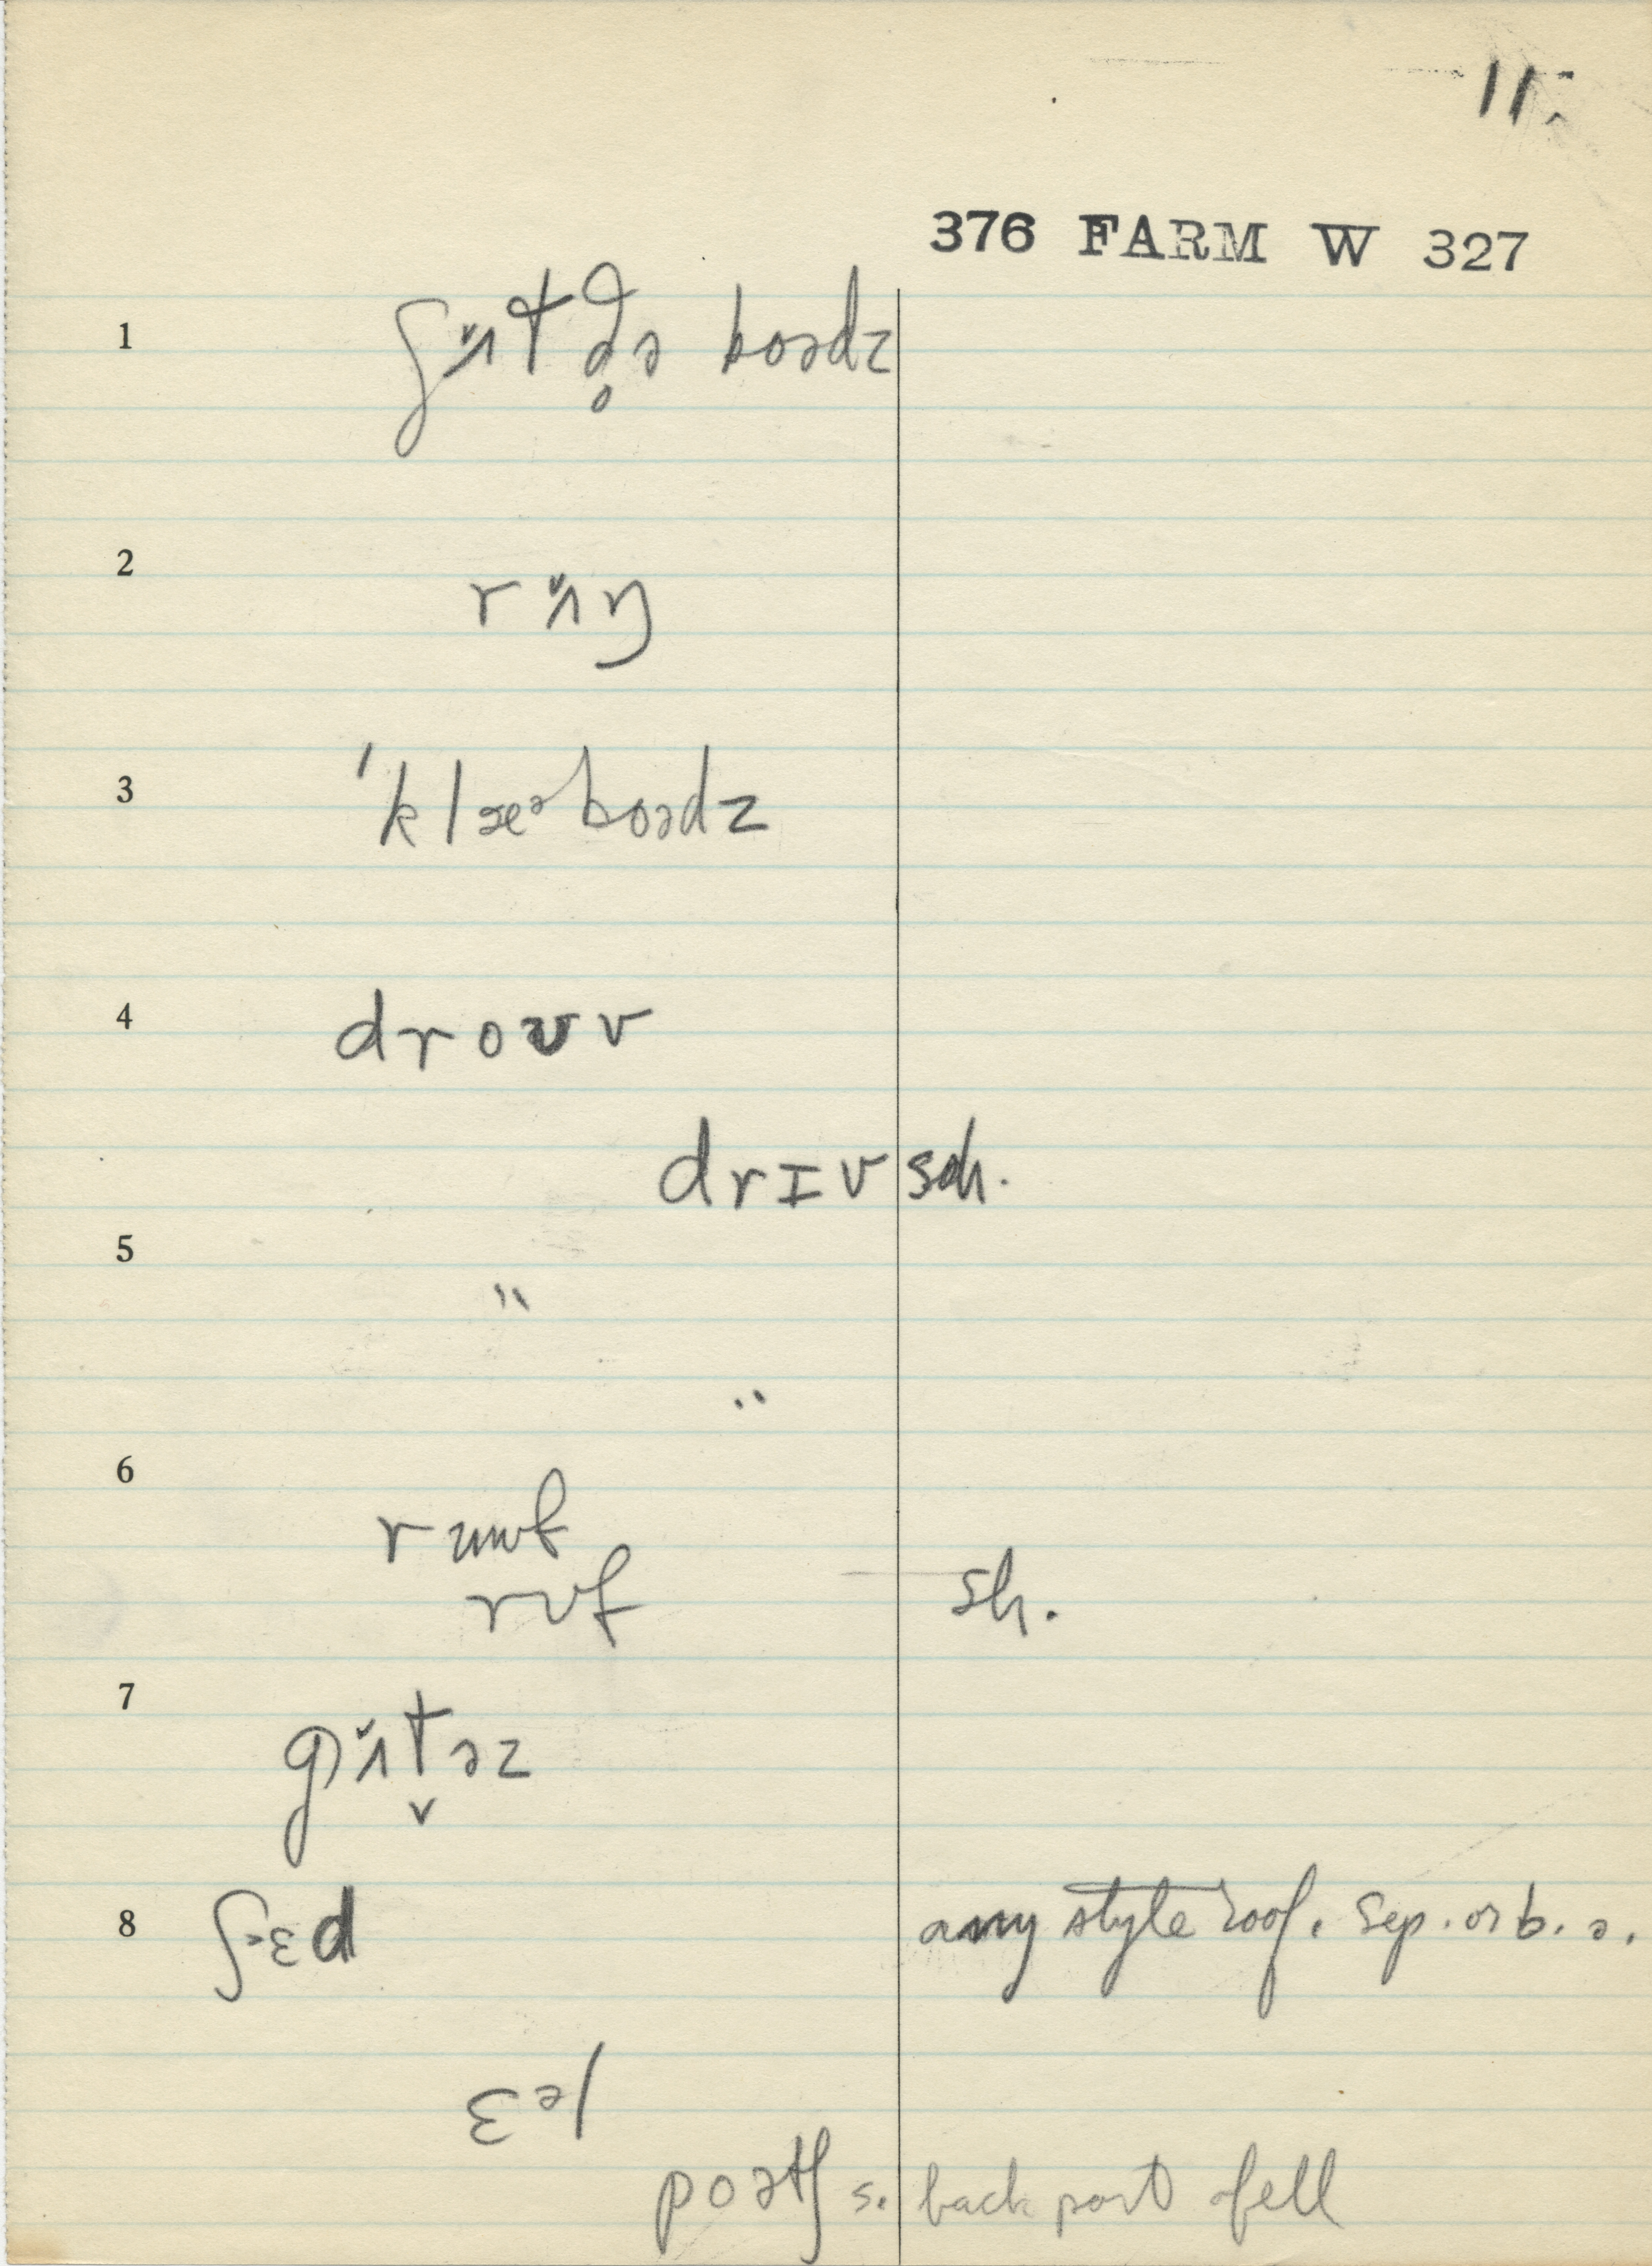 11.
376 FARM W 327
1 ʃɪ̌ʌt d̥ə boədz
2 rɪ̌ʌŋ
3 ˈklæᵊboədz
4 droʊv
drɪv sch.
5 "
"
6 rʉuf
rʊf sh.
7 gɪ̌ʌt̬əz
8 ʃɛd any style roof. Sep. or b. a.
ɛᵊl
poətʃ s. back port of ell